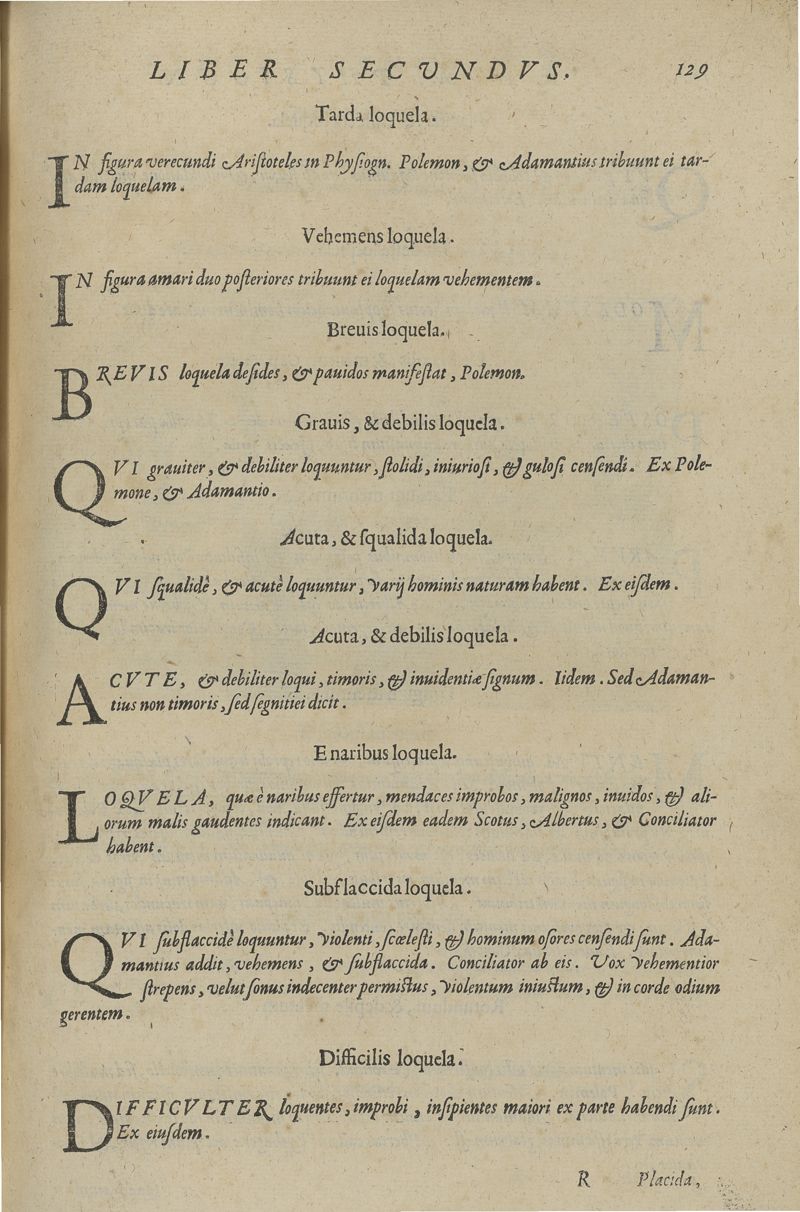 LIBER SECVNDVS. 129
Tarda loquela.
IN figura verecundi Ariſtoteles in Phyſiogn. Polemon, & Adamantius tribuunt ei tar-
dam loquelam.
Vehemens loquela.
IN figura amari duo poſteriores tribuunt ei loquelam vehementem.
Breuis loquela.
BREVIS loquela deſides, & pauidos manifeſtat, Polemon.
Grauis, & debilis loquela.
QVI grauiter, & debiliter loquuntur, ſtolidi, iniurioſi, & guloſi cenſendi. Ex Pole-
mone, & Adamantio.
Acuta, & ſqualida loquela.
QVI ſqualidè, & acutè loquuntur, varij hominis naturam habent. Ex eiſdem.
Acuta, & debilis loquela.
ACVTE, & debiliter loqui, timoris, & inuidentiæ ſignum. Iidem. Sed Adaman-
tius non timoris, ſed ſegnitiei dicit.
E naribus loquela.
LOQVELA, quæ è naribus effertur, mendaces improbos, malignos, inuidos, & ali-
orum malis gaudentes indicant. Ex eiſdem eadem Scotus, Albertus, & Conciliator
habent.
Subflaccida loquela.
QVI ſubflaccidè loquuntur, violenti, ſcœleſti, & hominum oſores cenſendi ſunt. Ada-
mantius addit, vehemens, & ſubflaccida. Conciliator ab eis. Vox vehementior
ſtrepens, velut ſonus indecenter permiſtus, violentum iniuſtum, & in corde odium
gerentem.
Difficilis loquela.
DIFFICVLTER loquentes, improbi, inſipientes maiori ex parte habendi ſunt.
Ex eiuſdem.
R Placida,